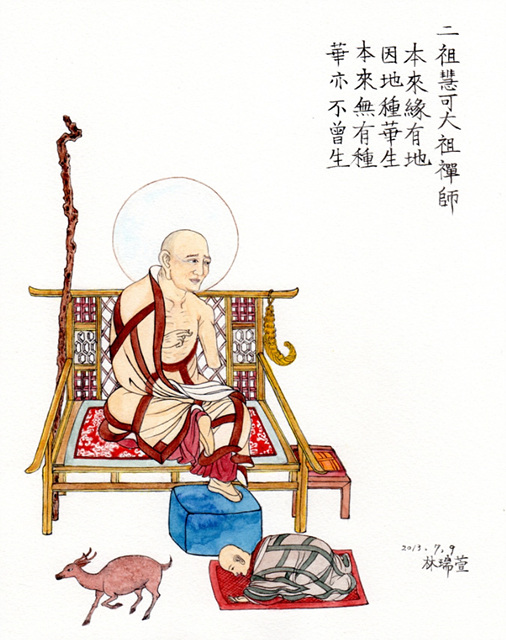 二祖慧可大祖禪師
本來緣有地
因地種華生
本來無有種
華亦不曾生
2013.7.9
林瑞萱